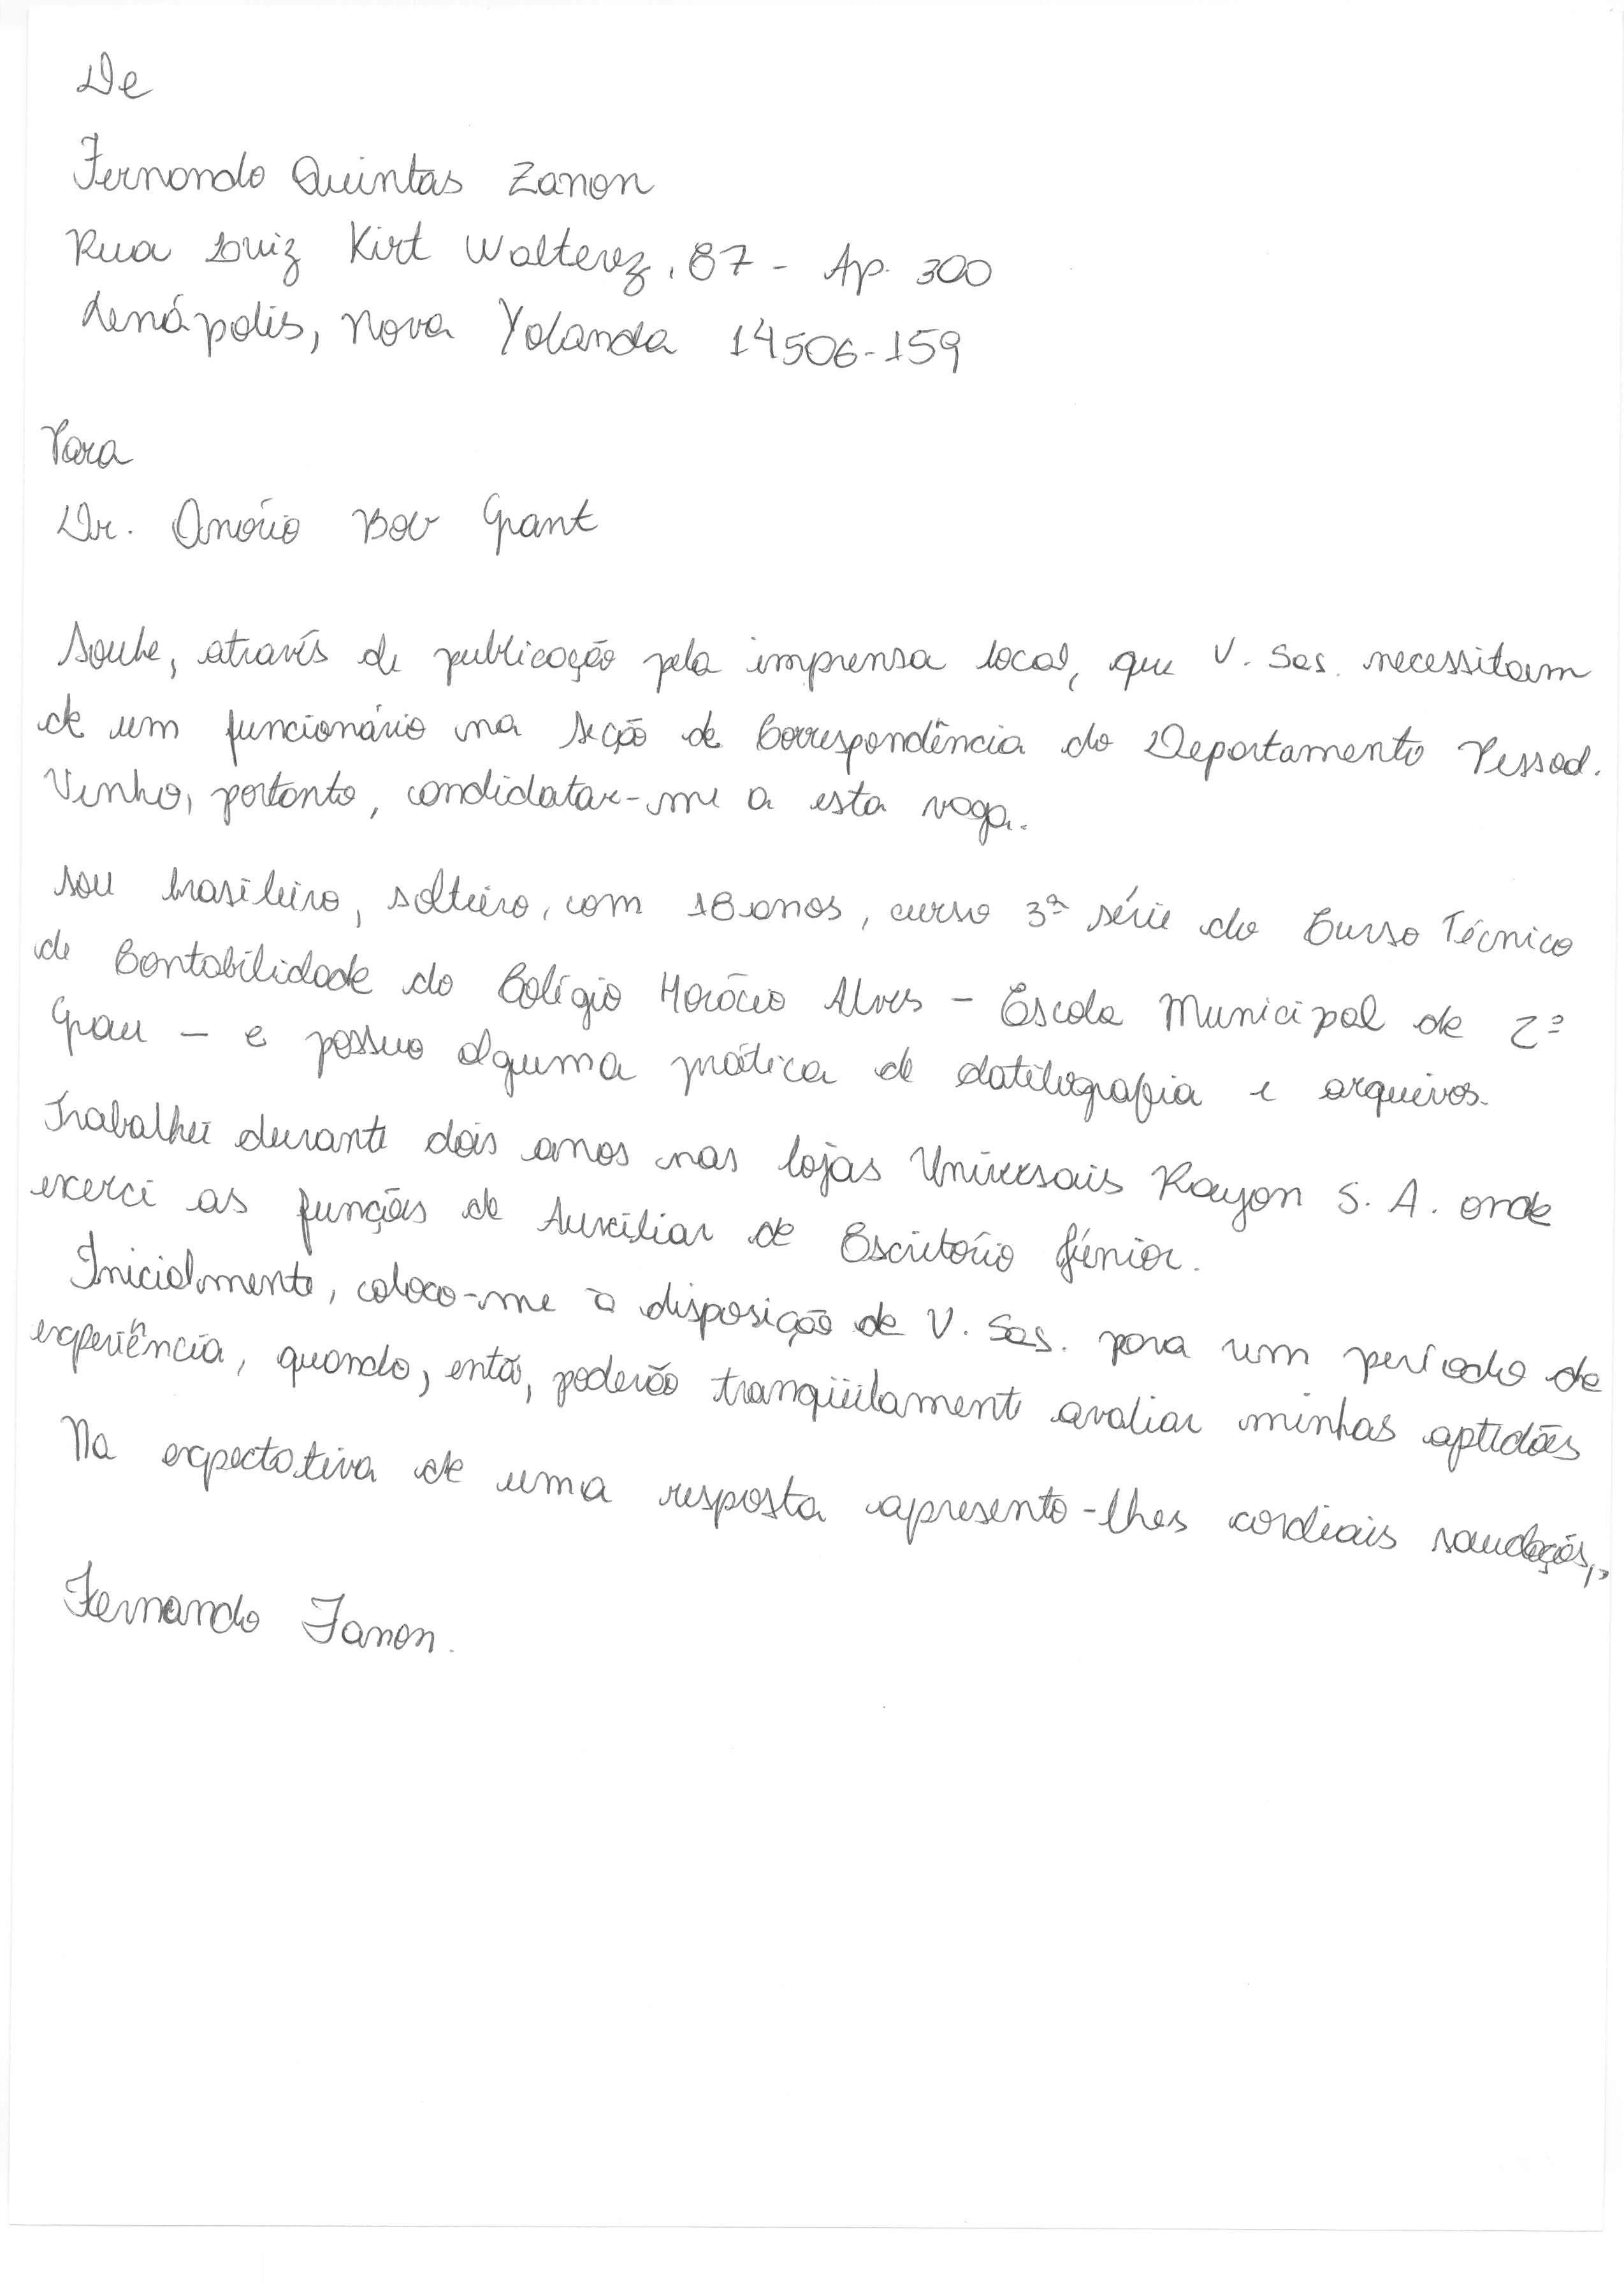 De
Fernando Quintas Zanon
Rua Luiz Kirt Walterez, 87 - Ap. 300
Lenápolis, Nova Yolanda 14506-159
Para
Dr. Onório Bov Grant
Soube, através de publicação pela imprensa local, que V. Sas. necessitam
de um funcionário na Seção de Correspondência do Departamento Pessoal.
Venho, portanto, candidatar-me a esta vaga.
Sou brasileiro, solteiro, com 18 anos, curso 3ª série do Curso Técnico
de Contabilidade do Colégio Horácio Alves - Escola Municipal de 2º
Grau - e possuo alguma prática de datilografia e arquivos.
Trabalhei durante dois anos nas lojas Universais Rayon S. A. onde
exerci as funções de Auxiliar de Escritório Júnior.
Inicialmente, coloco-me à disposição de V. Sas. para um período de
experiência, quando, então, poderão tranqüilamente avaliar minhas aptidões
Na expectativa de uma resposta apresento-lhes cordiais saudações,
Fernando Zanon.